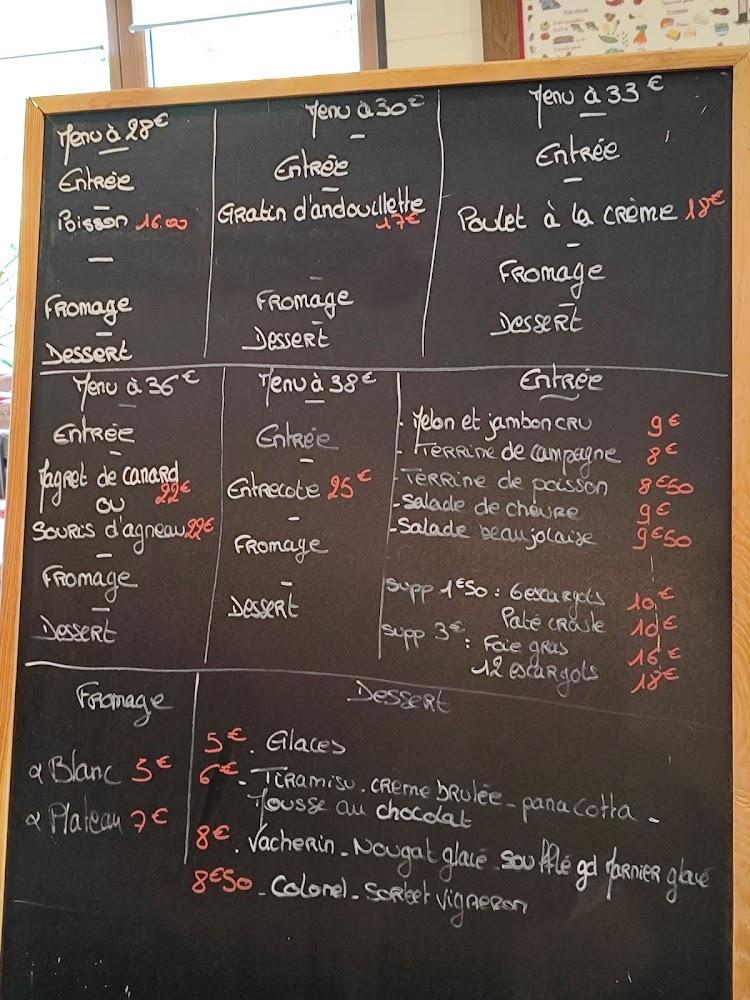 Menu à 28€
Entrée
Poisson 16.00
Fromage
Dessert
Menu à 30€
Entrée
Gratin d'andouillette
17€
Fromage
Dessert
Menu à 33€
Entrée
Poulet à la crème 18€
Fromage
Dessert
Menu à 36€
Entrée
Magret de canard
ou 22€
Souris d'agneau 22€
Fromage
Dessert
Menu à 38€
Entrée
Entrecote 25€
Fromage
Dessert
Entrée
- Melon et jambon cru 9€
- Terrine de campagne 8€
- Terrine de poisson 8€50
- Salade de chèvre 9€
- Salade beaujolaise 9€50
Supp 1€50 : 6 escargots 10€
Paté croute 10€
Supp 3€ : Foie gras 16€
12 escargots 18€
Fromage
Blanc 5€
Plateau 7€
Dessert
5€. Glaces
6€. Tiramisu. crème brulée - pana cotta -
Mousse au chocolat
8€. Vacherin - Nougat glacé - Soufflé gd Marnier glacé
8€50 - Colonel - Sorbet vigneron